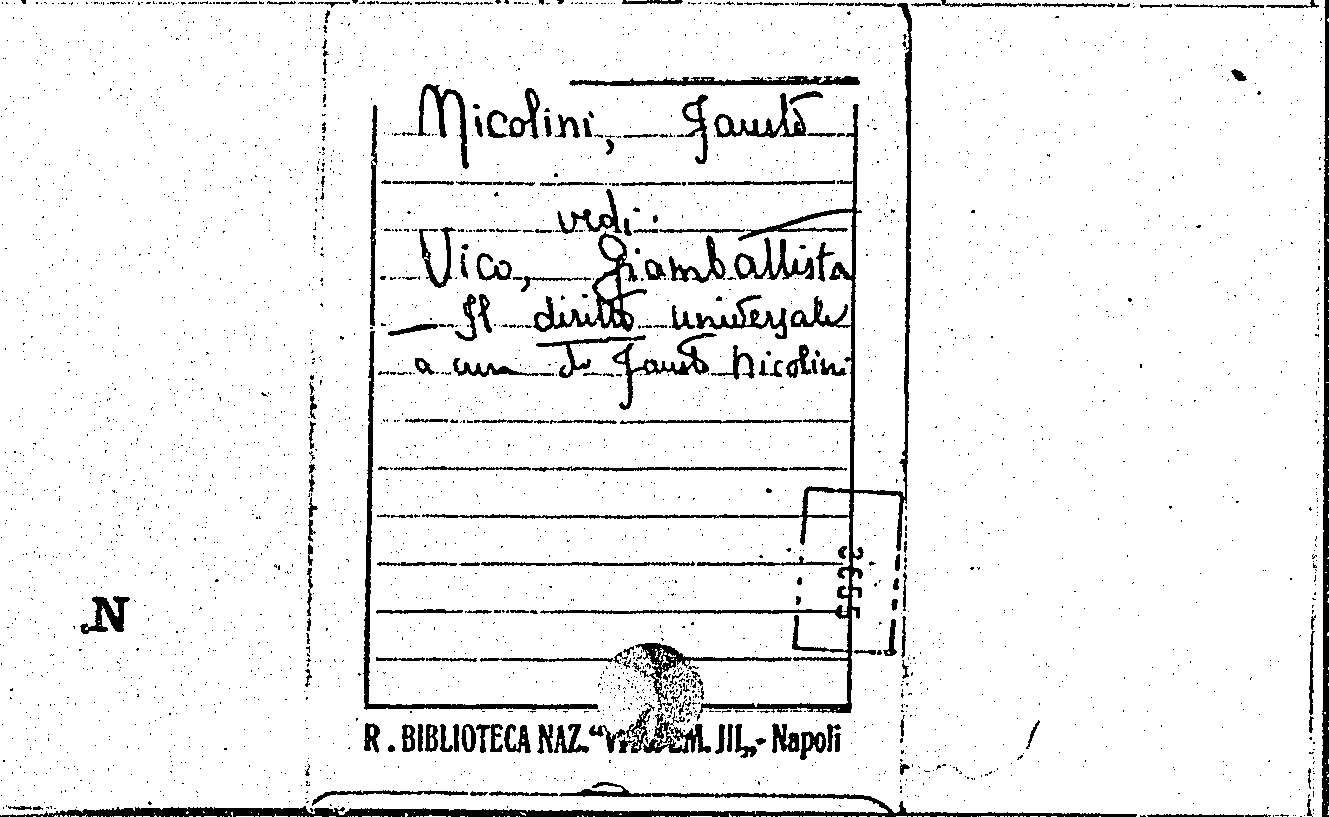 Nicolini, Fausto
vedi:
Vico, Giambattista
— Il diritto universale
a cura di Fausto Nicolini
N
R. BIBLIOTECA NAZ. "VITT. EM. III„ - Napoli